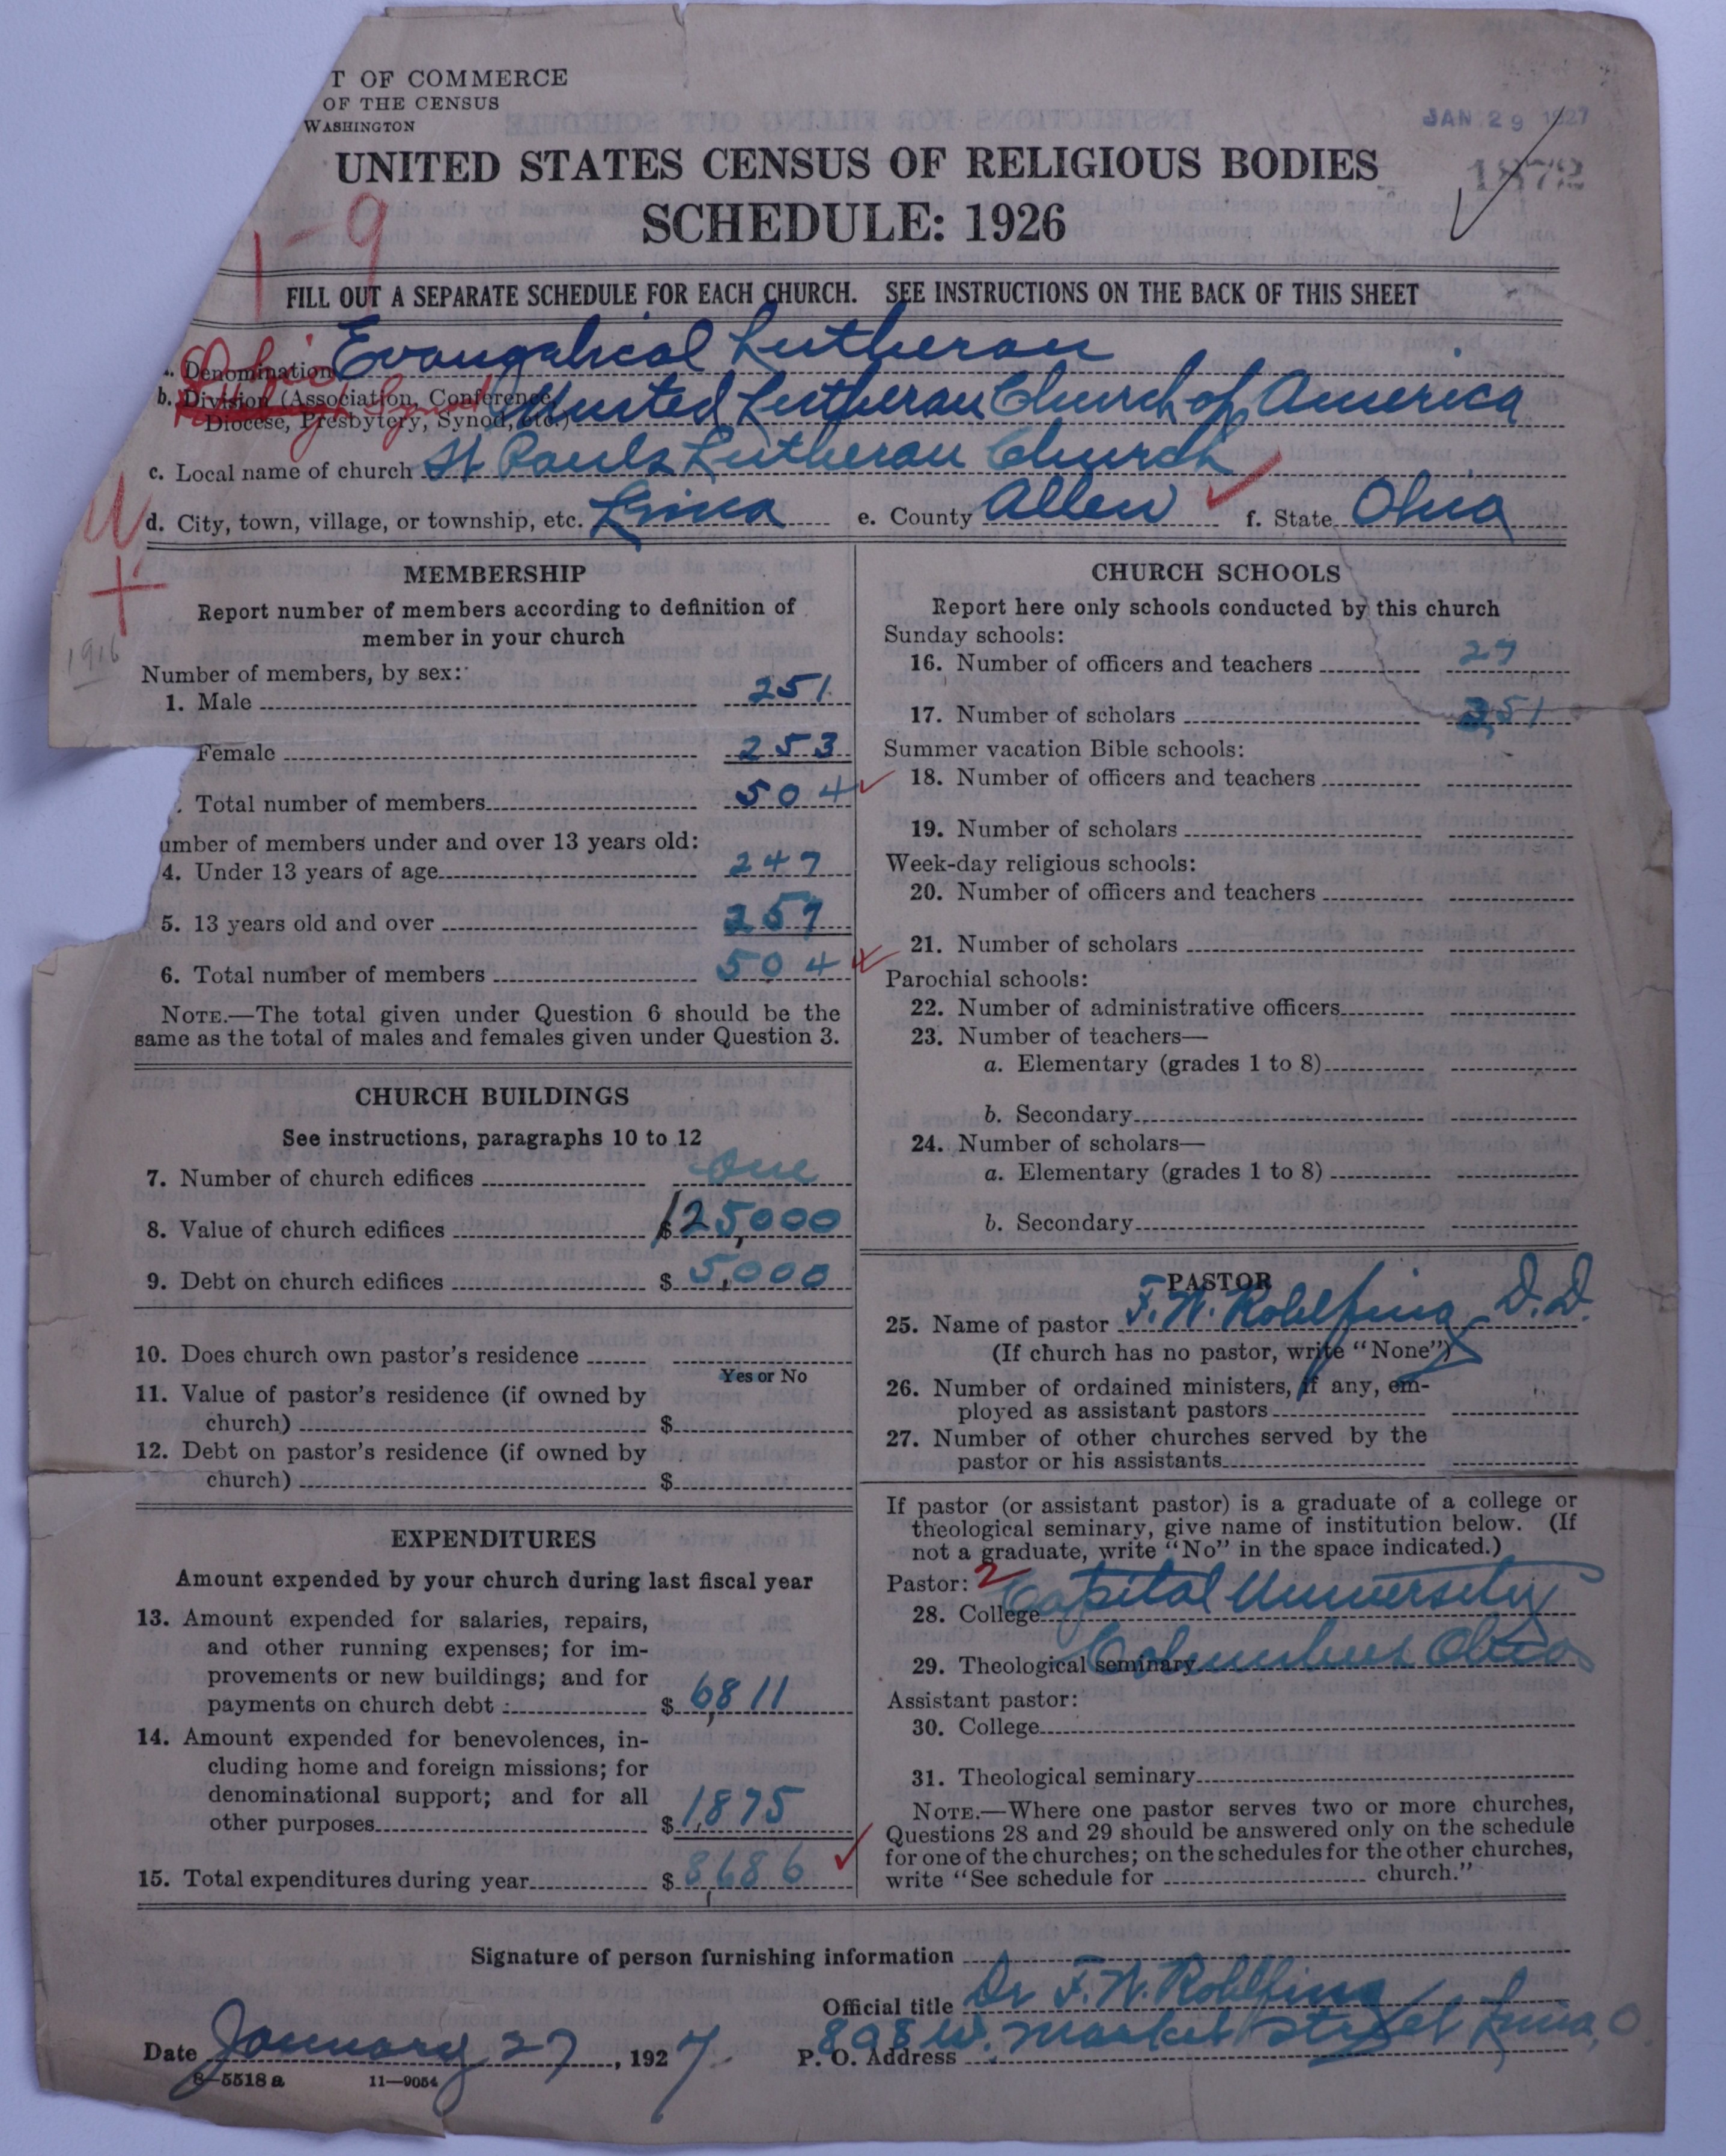 T OF COMMERCE
OF THE CENSUS
WASHINGTON
JAN 29 1927
1872
UNITED STATES CENSUS OF RELIGIOUS BODIES
SCHEDULE: 1926
1-9
FILL OUT A SEPARATE SCHEDULE FOR EACH CHURCH. SEE INSTRUCTIONS ON THE BACK OF THIS SHEET
a. Denomination Evangelical Lutheran
Ohio
b. Division (Association, Conference, Diocese, Presbytery, Synod, etc.) United Lutheran Church of America
Synod
c. Local name of church St Pauls Lutheran Church
d. City, town, village, or township, etc. Lima e. County Allen f. State Ohio
1916
MEMBERSHIP
Report number of members according to definition of
member in your church
Number of members, by sex:
1. Male 251
Female 253
. Total number of members 504
umber of members under and over 13 years old:
4. Under 13 years of age 247
5. 13 years old and over 257
6. Total number of members 504
NOTE.—The total given under Question 6 should be the
same as the total of males and females given under Question 3.
CHURCH BUILDINGS
See instructions, paragraphs 10 to 12
7. Number of church edifices One
8. Value of church edifices $ 125,000
9. Debt on church edifices $ 5,000
10. Does church own pastor's residence
Yes or No
11. Value of pastor's residence (if owned by
church) $
12. Debt on pastor's residence (if owned by
church) $
EXPENDITURES
Amount expended by your church during last fiscal year
13. Amount expended for salaries, repairs,
and other running expenses; for im-
provements or new buildings; and for
payments on church debt $ 6,811
14. Amount expended for benevolences, in-
cluding home and foreign missions; for
denominational support; and for all
other purposes $ 1,875
15. Total expenditures during year $ 8,686
CHURCH SCHOOLS
Report here only schools conducted by this church
Sunday schools:
16. Number of officers and teachers 27
17. Number of scholars 351
Summer vacation Bible schools:
18. Number of officers and teachers
19. Number of scholars
Week-day religious schools:
20. Number of officers and teachers
21. Number of scholars
Parochial schools:
22. Number of administrative officers
23. Number of teachers—
a. Elementary (grades 1 to 8)
b. Secondary
24. Number of scholars—
a. Elementary (grades 1 to 8)
b. Secondary
PASTOR
25. Name of pastor F. W. Rohlfing D.D.
(If church has no pastor, write "None")
26. Number of ordained ministers, if any, em-
ployed as assistant pastors
27. Number of other churches served by the
pastor or his assistants
If pastor (or assistant pastor) is a graduate of a college or
theological seminary, give name of institution below. (If
not a graduate, write "No" in the space indicated.)
Pastor: 2
28. College Capital University
29. Theological seminary Columbus Ohio
Assistant pastor:
30. College
31. Theological seminary
NOTE.—Where one pastor serves two or more churches,
Questions 28 and 29 should be answered only on the schedule
for one of the churches; on the schedules for the other churches,
write "See schedule for church."
Signature of person furnishing information
Official title Dr F. W. Rohlfing
Date January 27, 1927. P. O. Address 808 W. Market Street Lima, O
8—5518 a 11—9054